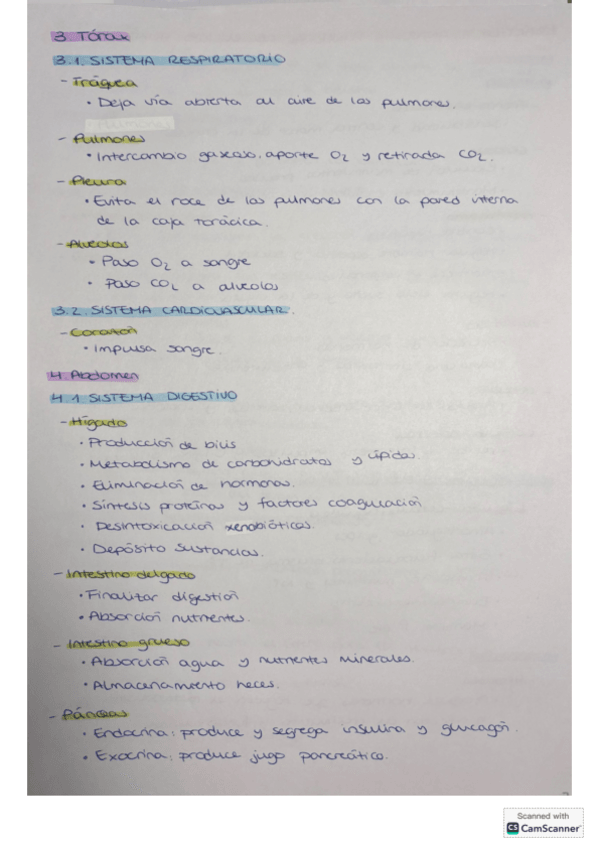 3. Tórax
3.1. SISTEMA RESPIRATORIO
- Tráquea
• Deja vía abierta al aire de los pulmones.
- Pulmones
• Intercambio gaseoso. aporte O₂ y retirada CO₂.
- Pleura
• Evita el roce de los pulmones con la pared interna
de la caja torácica.
- Alveolos
• Paso O₂ a sangre
• Paso CO₂ a alveolos
3.2. SISTEMA CARDIOVASCULAR.
- Corazón
• Impulsa sangre.
4. Abdomen
4.1 SISTEMA DIGESTIVO
- Hígado
• Producción de bilis
• Metabolismo de carbohidratos y lípidos.
• Eliminación de hormonas.
• Síntesis proteínas y factores coagulación
• Desintoxicación xenobióticos.
• Depósito sustancias.
- Intestino delgado
• Finalizar digestión
• Absorción nutrientes.
- Intestino grueso
• Absorción agua y nutrientes minerales.
• Almacenamiento heces.
- Páncreas
• Endocrina: produce y segrega insulina y glucagón.
• Exocrina: produce jugo pancreático.
Scanned with
CS CamScanner